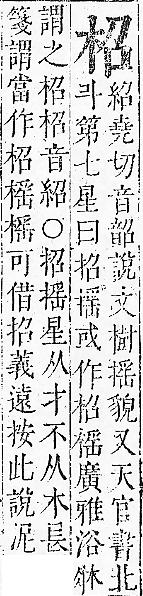 柖
紹堯切音韶說文樹搖貌又天官書北
斗第七星曰招搖或作柖榣廣雅浴牀
謂之柖柖音紹○招搖星从才不从木長
箋謂當作柖榣榣可借招義遠按此說泥